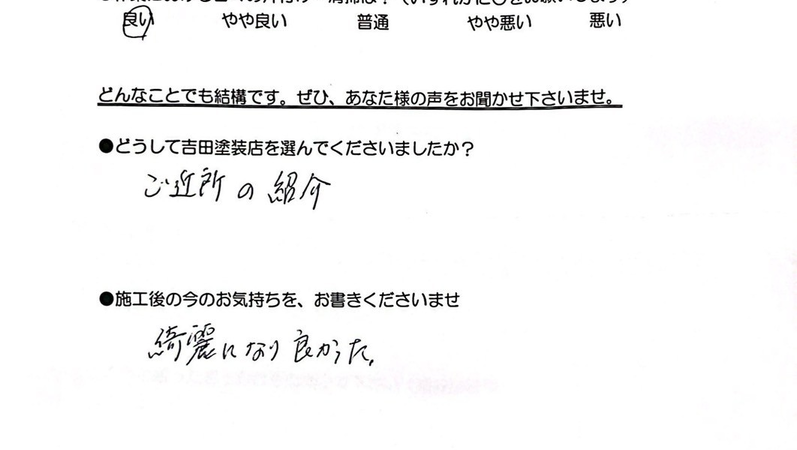 良い やや良い 普通 やや悪い 悪い
どんなことでも結構です。ぜひ、あなた様の声をお聞かせ下さいませ。
●どうして吉田塗装店を選んでくださいましたか？
ご近所の紹介
●施工後の今のお気持ちを、お書きくださいませ
綺麗になり良かった。